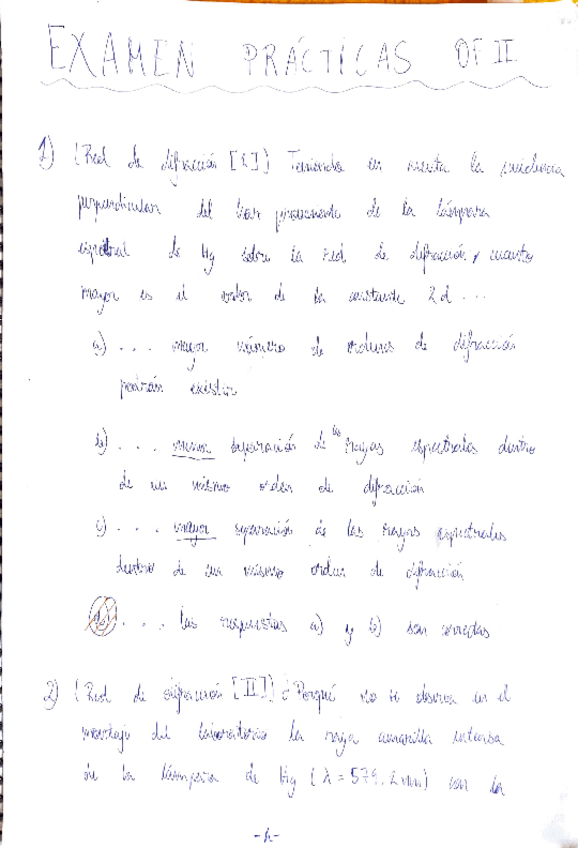 EXAMEN PRÁCTICAS OF II
1) (Red de difracción [I]) Teniendo en cuenta la incidencia
perpendicular del haz proveniente de la lámpara
espectral de Hg sobre la red de difracción, cuanto
mayor es el valor de la constante 2d ...
a) ... mayor número de ordenes de difracción
podrán existir
b) ... menor separación de las rayas espectrales dentro
de un mismo orden de difracción
c) ... mayor separación de las rayas espectrales
dentro de un mismo orden de difracción
d) ... las respuestas a) y b) son correctas
2) (Red de difracción [II]) ¿Porqué no se observa en el
montaje del laboratorio la raya amarilla intensa
de la lámpara de Hg (λ = 579.2 nm) con la